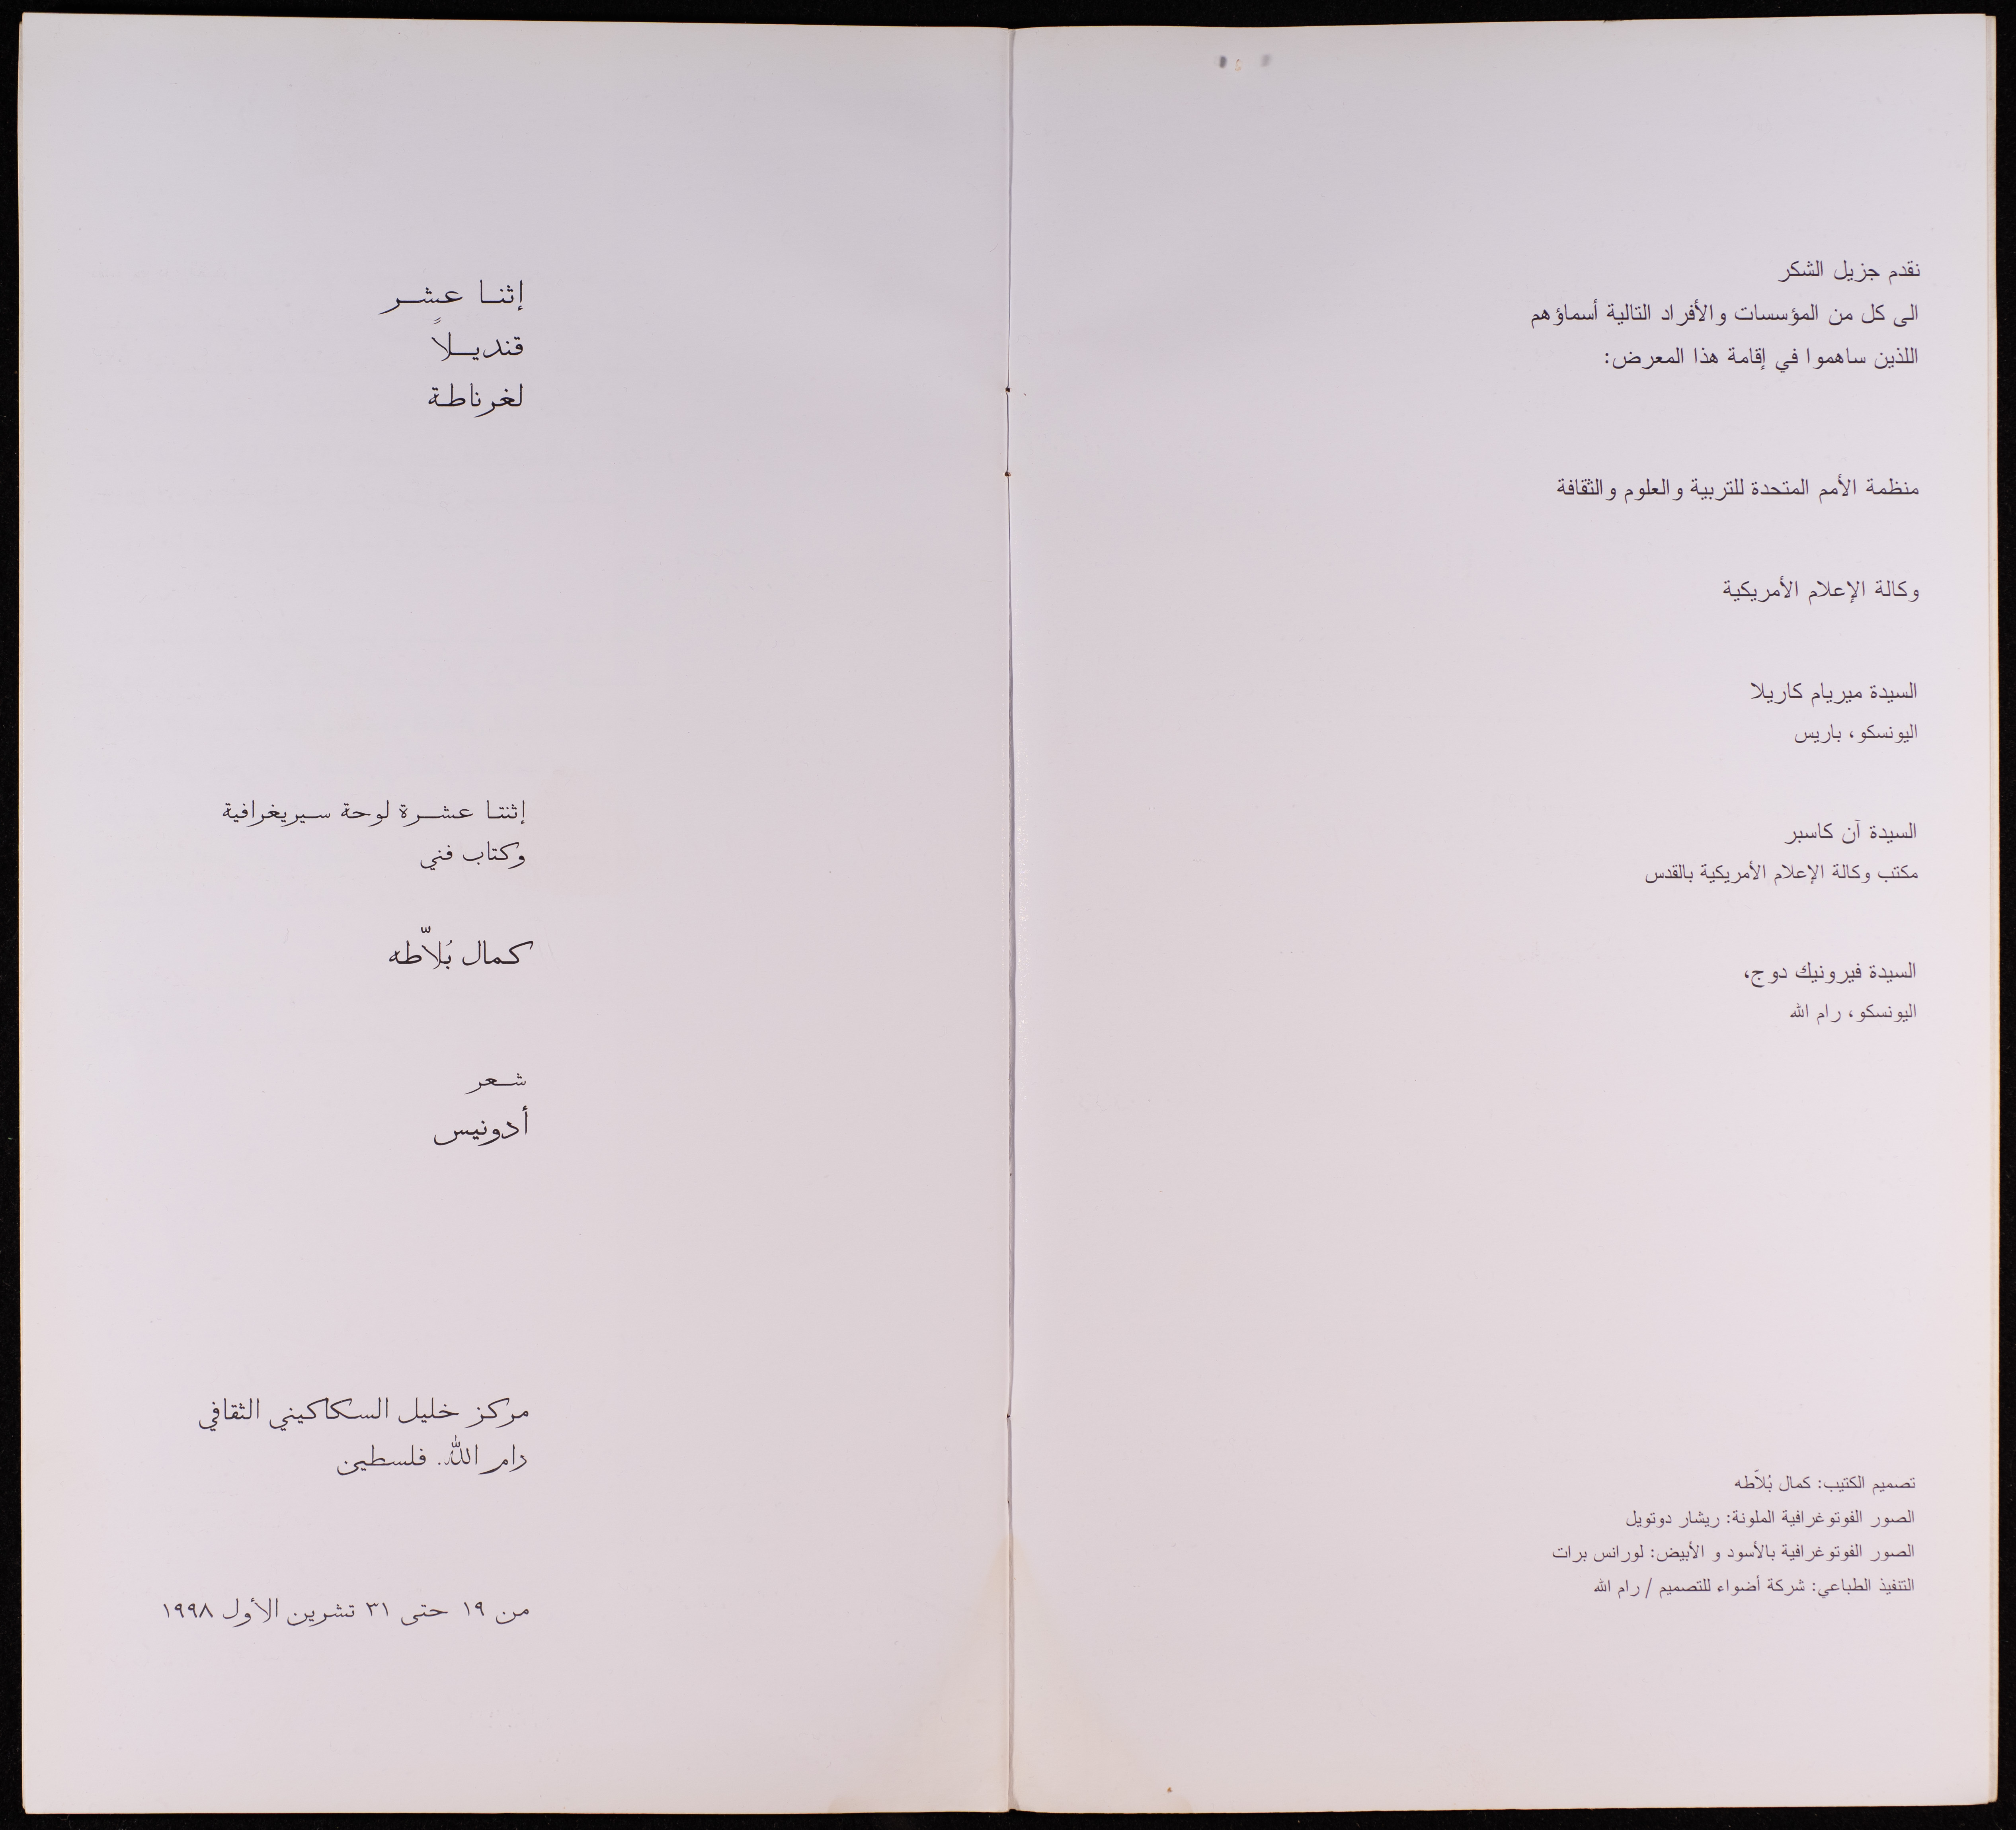 نقدم جزيل الشكر
الى كل من المؤسسات والأفراد التالية أسماؤهم
اللذين ساهموا في إقامة هذا المعرض:
منظمة الأمم المتحدة للتربية والعلوم والثقافة
وكالة الإعلام الأمريكية
السيدة ميريام كاريلا
اليونسكو، باريس
السيدة آن كاسبر
مكتب وكالة الإعلام الأمريكية بالقدس
السيدة فيرونيك دوج،
اليونسكو، رام الله
تصميم الكتيب: كمال بُلاّطه
الصور الفوتوغرافية الملونة: ريشار دوتويل
الصور الفوتوغرافية بالأسود و الأبيض: لورانس برات
التنفيذ الطباعي: شركة أضواء للتصميم / رام الله
إثنا عشر
قنديلاً
لغرناطة
إثنتا عشرة لوحة سيريغرافية
وكتاب فني
كمال بُلاّطه
شعر
أدونيس
مركز خليل السكاكيني الثقافي
رام الله. فلسطين
من ١٩ حتى ٣١ تشرين الأول ١٩٩٨